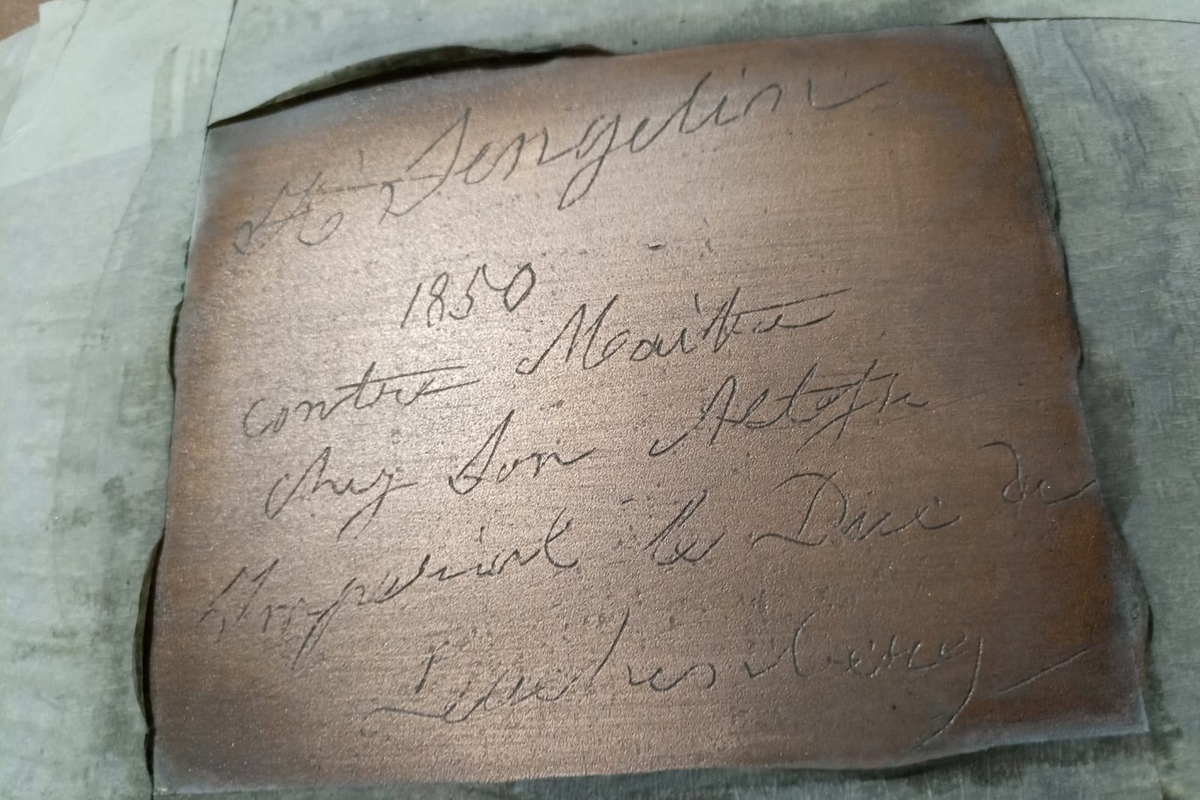 Hr Sengelin
1850
contre Maitre
chez Son Altesse
Imperial le Duc de
Leuchtenberg